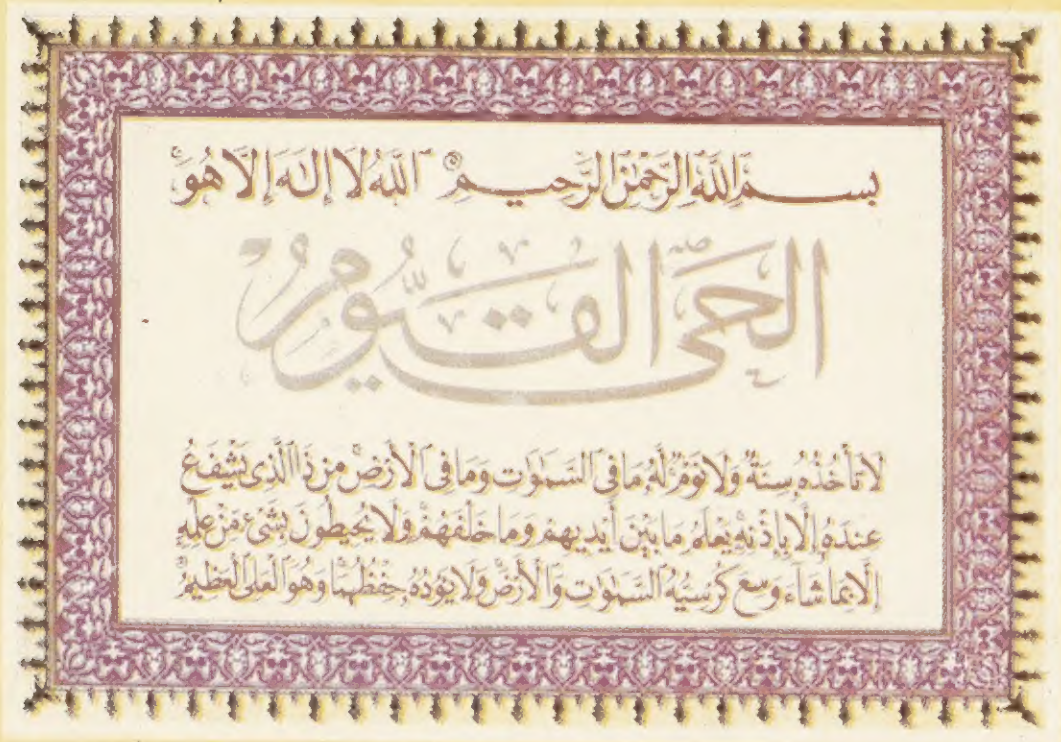 بِسْمِ اللَّهِ الرَّحْمَٰنِ الرَّحِيمِ اللَّهُ لَا إِلَٰهَ إِلَّا هُوَ
الْحَيُّ الْقَيُّومُ
لَا تَأْخُذُهُ سِنَةٌ وَلَا نَوْمٌ لَهُ مَا فِي السَّمَٰوَٰتِ وَمَا فِي الْأَرْضِ مَنْ ذَا الَّذِي يَشْفَعُ
عِنْدَهُ إِلَّا بِإِذْنِهِ يَعْلَمُ مَا بَيْنَ أَيْدِيهِمْ وَمَا خَلْفَهُمْ وَلَا يُحِيطُونَ بِشَيْءٍ مِنْ عِلْمِهِ
إِلَّا بِمَا شَاءَ وَسِعَ كُرْسِيُّهُ السَّمَٰوَٰتِ وَالْأَرْضَ وَلَا يَئُودُهُ حِفْظُهُمَا وَهُوَ الْعَلِيُّ الْعَظِيمُ